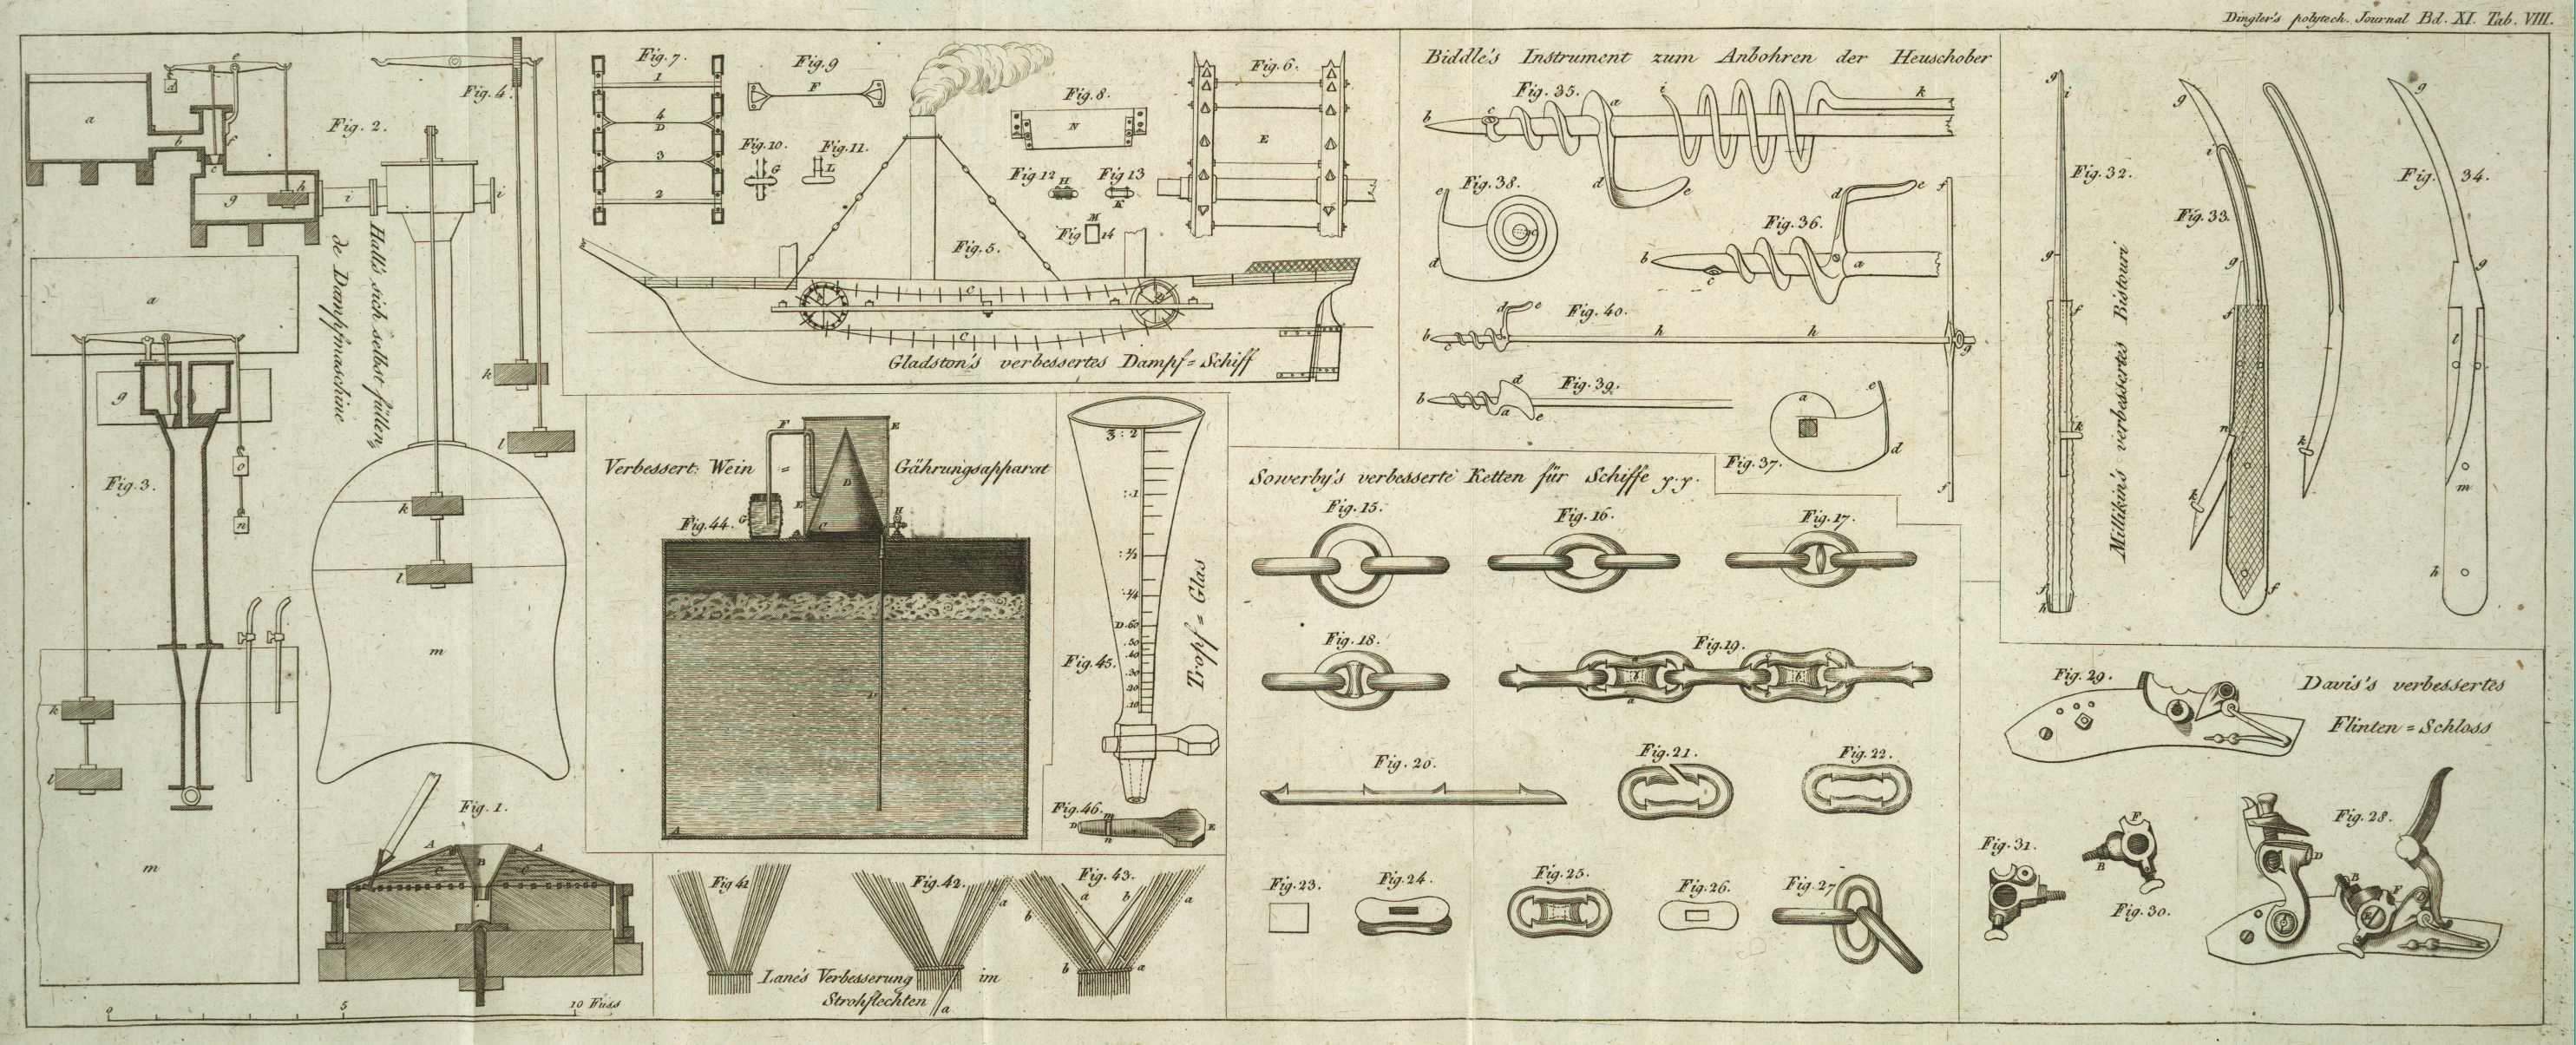 Dingler's polytech. Journal Bd. XI. Tab. VIII.
Fig. 2.
a
b
c
d
e
f
g
h
i
i
Fig. 4.
k
l
Hall's sich selbst füllen=
de Dampfmaschine
k
l
m
Fig. 3.
a
g
o
n
k
l
m
Fig. 1.
A
A
B
C
C
0
5
10 Fuss
Fig. 7.
1
4
D
3
2
Fig. 9
F
Fig. 10.
G
Fig. 11.
L
Fig. 8.
N
Fig. 12
H
Fig. 13
K
M
Fig 14
Fig. 6.
E
Fig. 5.
C
C
Gladston's verbessertes Dampf=Schiff
Verbessert: Wein = Gährungsapparat
Fig. 44.
F
E
D
E
C
G
H
A
Fig. 45.
3:2
:1
:½
:¼
D. 60
.50
.40
.30
.20
.10
Tropf = Glas
Fig. 46.
m
D
n
E
Fig 41
Fig. 42.
a
a
Fig. 43.
a
b
b
a
b
a
Lane's Verbesserung im
Strohflechten
Biddle's Instrument zum Anbohren der Heuschober
Fig. 35.
b
c
a
i
k
d
e
Fig. 38.
e
c
d
Fig. 36.
d
e
f
b
c
a
Fig. 40.
b
c
d
e
h
h
g
f
Fig. 39.
b
d
a
e
Fig. 37.
a
e
d
Sowerby's verbesserte Ketten für Schiffe p.p.
Fig. 15.
Fig. 16.
Fig. 17.
Fig. 18.
Fig. 19.
a
Fig. 20.
Fig. 21.
Fig. 22.
Fig. 23.
Fig. 24.
Fig. 25.
Fig. 26.
Fig. 27
Millikin's verbessertes Bistouri
Fig. 32.
g
i
g
f
k
f
h
Fig. 33.
g
i
g
f
n
k
f
k
Fig. 34.
g
g
l
m
h
Davis's verbessertes
Flinten=Schloss
Fig. 29.
Fig. 28.
D
B
F
Fig. 31.
F
B
Fig. 30.